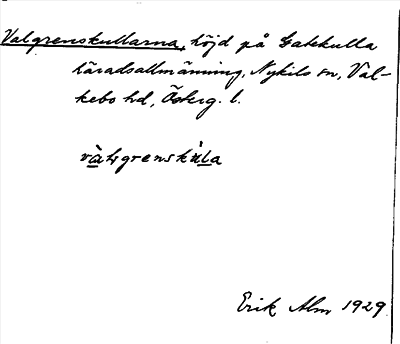 Valgrenskullarna, höjd på Gatekulla
häradsallmänning, Nykils sn, Val-
kebo hd, Österg. l.
Erik Alm 1929